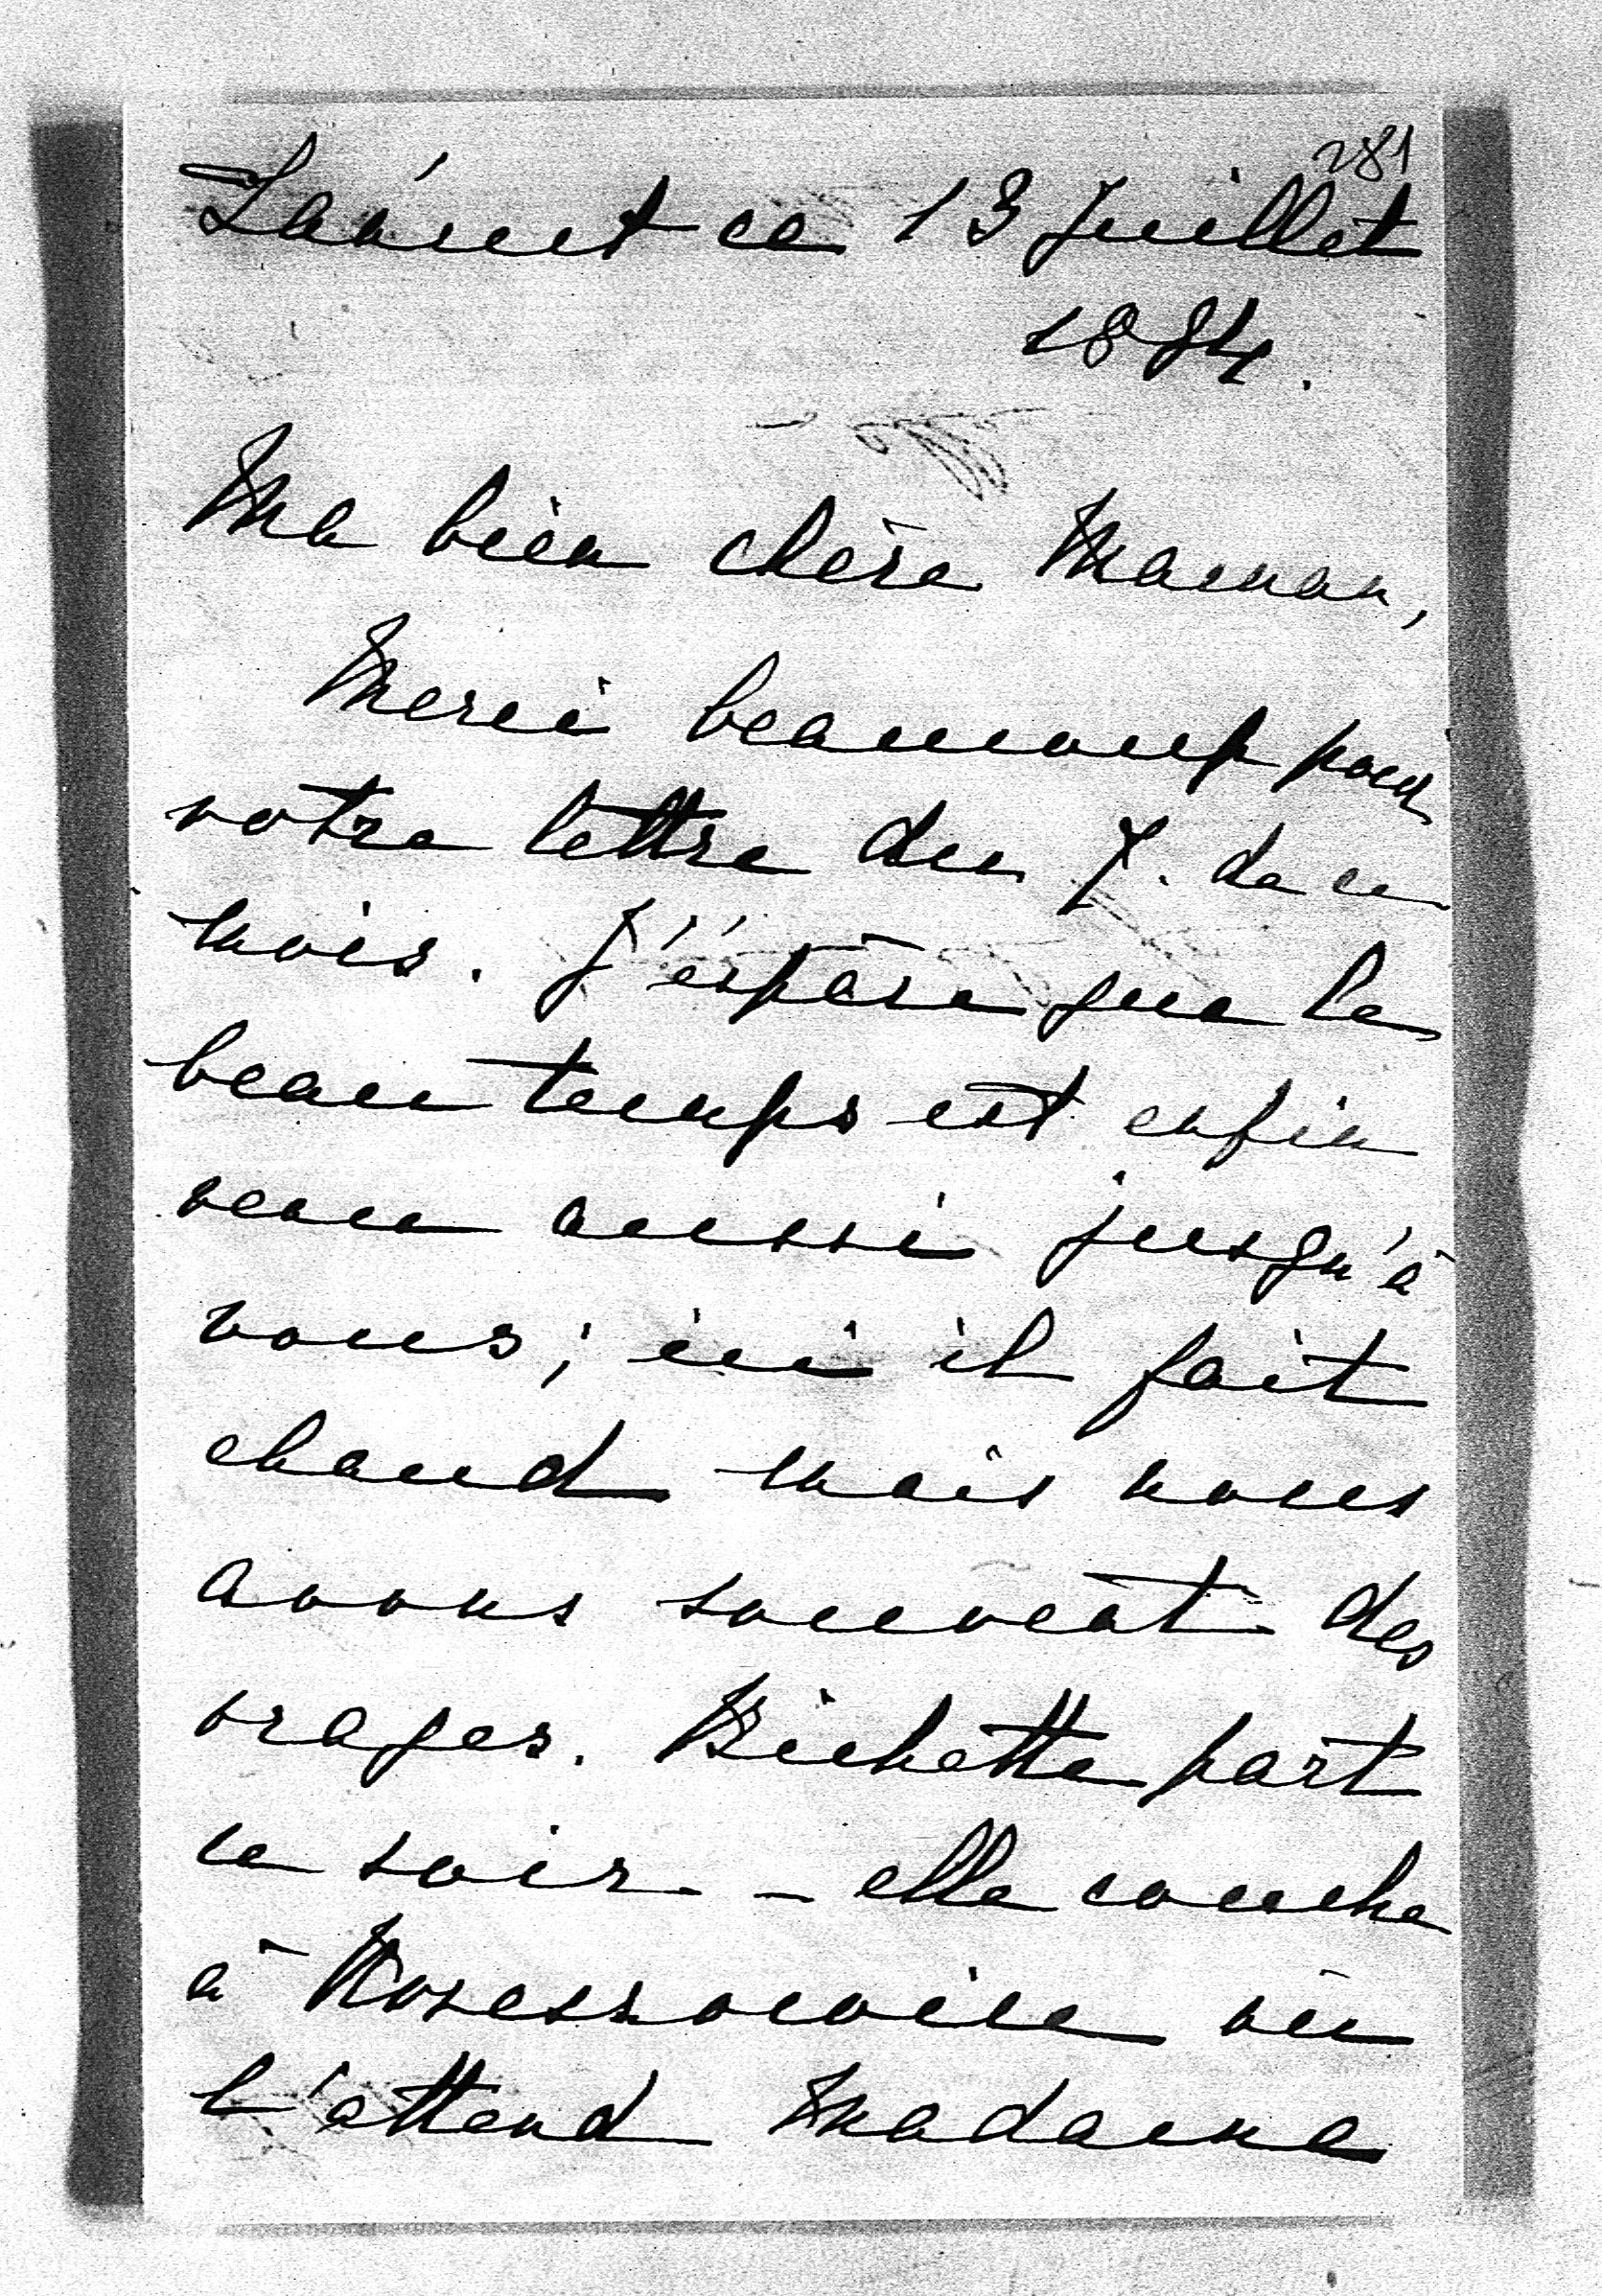 281
Łańcut ce 13 Juillet
1884.
Ma bien chère Maman,
Merci beaucoup pour
votre lettre du 7. de ce
mois. J'éspère que le
beau temps est enfin
venu aussi jusqu'à
vous; ici il fait
chaud mais nous
avons souvent des
orages. Bichette part
ce soir. – elle couche
à où
l'attend Madame